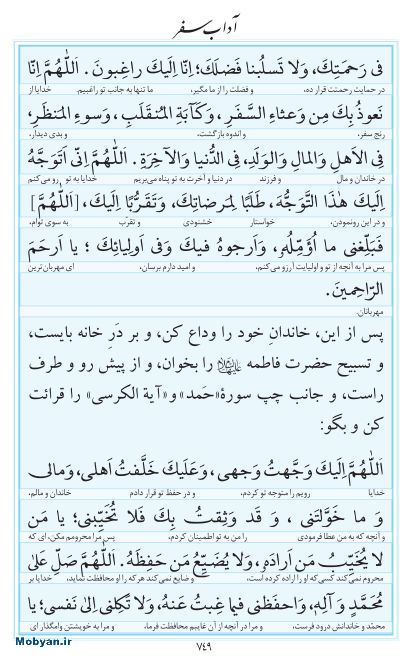 آداب سفر
فى رَحمَتِكَ، وَلا تَسلُبنا فَضلَكَ؛ اِنّا اِلَيكَ راغِبونَ. اَللّٰهُمَّ اِنّا
در حمایت رحمتت قرار ده، و فضلت را از ما مگیر، ما تنها به جانب تو راغبیم. خدایا از
نَعوذُ بِكَ مِن وَعثاءِ السَّفَرِ، وَكَآبَةِ المُنقَلَبِ، وَسوءِ المَنظَرِ،
رنج سفر، و اندوه بازگشت، و بدی دیدار،
فِى الاَهلِ وَالمالِ وَالوَلَدِ، فِى الدُّنيا وَالآخِرَةِ. اَللّٰهُمَّ اِنّى اَتَوَجَّهُ
در خاندان و مال و فرزند در دنیا و آخرت به تو پناه می‌بریم خدایا به تو رو می‌کنم
اِلَيكَ هٰذَا التَّوَجُّهَ، طَلَبًا لِمَرضاتِكَ، وَتَقَرُّبًا اِلَيكَ، [اَللّٰهُمَّ]
و در این رونمودن، خواستار خشنودی و تقرّب به سوی توام،
فَبَلِّغنى ما اُؤَمِّلُهُ، وَاَرجوهُ فيكَ وَفى اَولِيائِكَ؛ يا اَرحَمَ
پس مرا به آنچه از تو و اولیایت آرزو می‌کنم، و امید دارم برسان، ای مهربان‌ترین
الرّاحِمينَ.
مهربانان.
پس از این، خاندانِ خود را وداع کن، و بر دَرِ خانه بایست،
و تسبیح حضرت فاطمه علیهاالسلام را بخوان، و از پیش رو و طرف
راست، و جانب چپ سورهٔ «حَمد» و «آیة الکرسی» را قرائت
کن و بگو:
اَللّٰهُمَّ اِلَيكَ وَجَّهتُ وَجهى، وَعَلَيكَ خَلَّفتُ اَهلى، وَمالى
خدایا رویم را متوجه تو کردم، و در حفظ تو قرار دادم خاندان و مالم،
وَ ما خَوَّلتَنى، وَ قَد وَثِقتُ بِكَ فَلا تُخَيِّبنى؛ يا مَن
و آنچه که به من عطا فرمودی و من به تو اطمینان کردم، پس مرا محرومم مکن، ای که
لا يُخَيِّبُ مَن اَرادَهُ، وَلا يُضَيِّعُ مَن حَفِظَهُ. اَللّٰهُمَّ صَلِّ عَلىٰ
محروم نمی‌کند کسی که او را اراده کرده است، و ضایع نمی‌کند هر که را او محافظت نماید، خدایا بر
مُحَمَّدٍ وَ آلِهِ، وَاحفَظنى فيما غِبتُ عَنهُ، وَلا تَكِلنى اِلىٰ نَفسى؛ يا
محمّد و خاندانش درود فرست، و مرا در آنچه از آن غایبم محافظت فرما، و مرا به خویشتن وامگذار ای
Mobyan.ir
۷۴۹